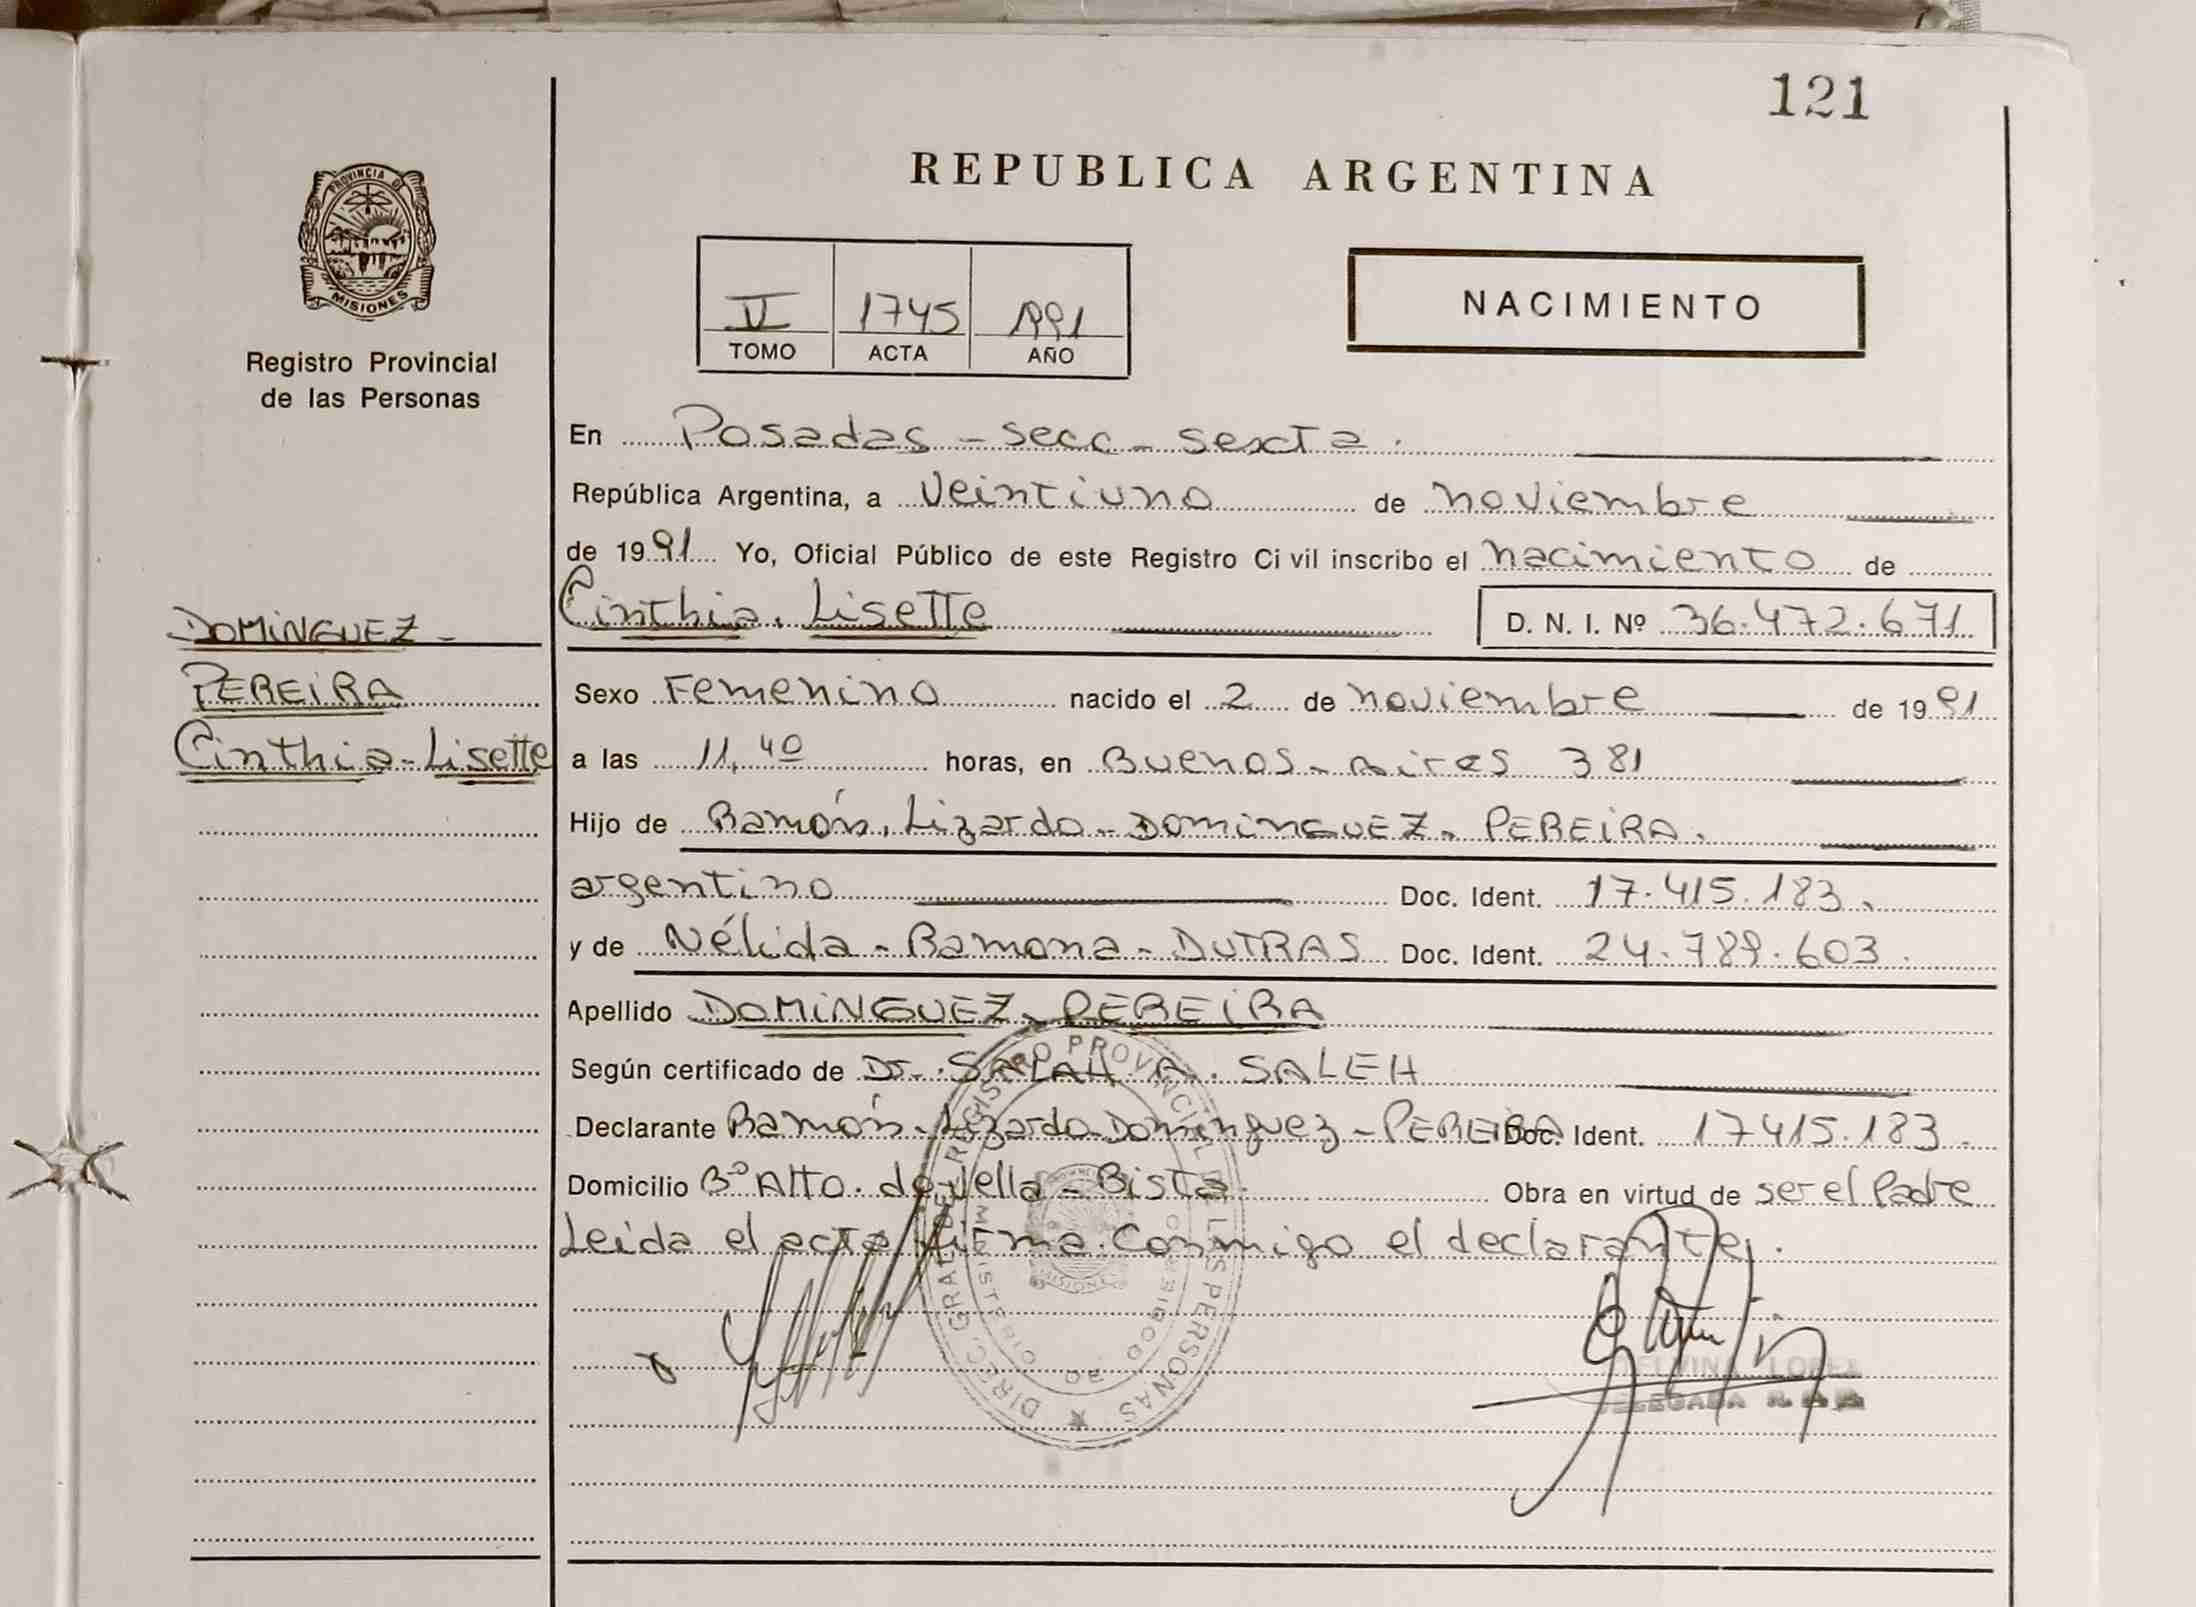 121
REPUBLICA ARGENTINA
PROVINCIA DE
MISIONES
Registro Provincial
de las Personas
V 1745 1991
TOMO ACTA AÑO
NACIMIENTO
En Posadas - secc - sexta.
República Argentina, a veintiuno de noviembre
de 1991 Yo, Oficial Público de este Registro Civil inscribo el nacimiento de
Cinthia. Lisette D. N. I. Nº 36.472.671
DOMINGUEZ -
PEREIRA
Cinthia - Lisette
Sexo Femenino nacido el 2 de noviembre de 1991
a las 11,40 horas, en Buenos - Aires 381
Hijo de Ramón, Lizardo - DOMINGUEZ - PEREIRA.
argentino Doc. Ident. 17.415.183.
y de Nélida - Ramona - DUTRAS Doc. Ident. 24.789.603.
Apellido DOMINGUEZ - PEREIRA
Según certificado de Dr. A. SALEH
Declarante Ramón - Lizardo Dominguez - PEREIRA Doc. Ident. 17415.183.
Domicilio Bº Alto. de vella - Bista. Obra en virtud de ser el Padre
Leida el acta firma. Conmigo el declarante.
DIREC. GRAL. DEL REGISTRO PROVINCIAL DE LAS PERSONAS
MINISTERIO DE GOBIERNO
MISIONES
LOPEZ
DELEGADA